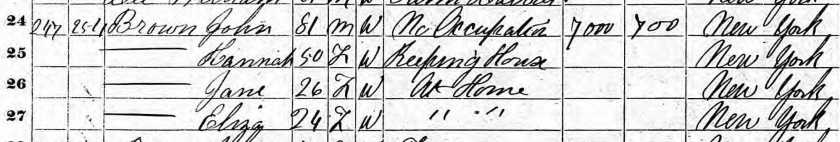 24 247 Brown John 81 M W No Occupation 7000 700 New York
25 —— Hannah 50 F W Keeping House New York
26 —— Jane 26 F W At Home New York
27 —— Eliza 24 F W " " New York